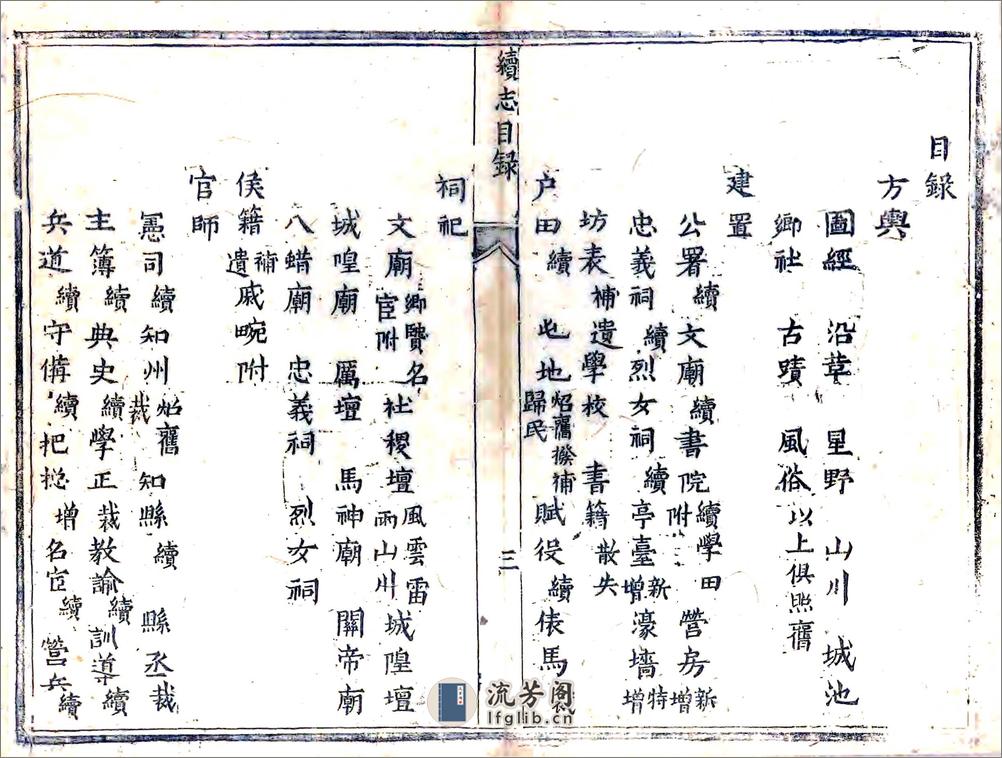 目録
方輿
圖經 沿革 星野 山川 城池
鄉社 古蹟 風俗 以上俱照舊
建置
公署續 文廟續 書院續學田附 營房新增
忠義祠續 烈女祠續 亭臺新增 濠墻特增
坊表補遺 學校 書籍散失
户田續 屯地炤舊揆補歸民 賦役續 俵馬
續志目録
三
祠祀
文廟鄉賢名宦附 社稷壇 風雲雷雨山川城隍壇
城隍廟 厲壇 馬神廟 關帝廟
八蜡廟 忠義祠 烈女祠
侯籍補遺 戚畹附
官師
憲司續 知州炤舊裁 知縣續 縣丞裁
主簿續 典史續 學正裁 教諭續 訓導續
兵道續 守備續 把總增 名宦續 營兵續
流芳阁
lfglib.cn